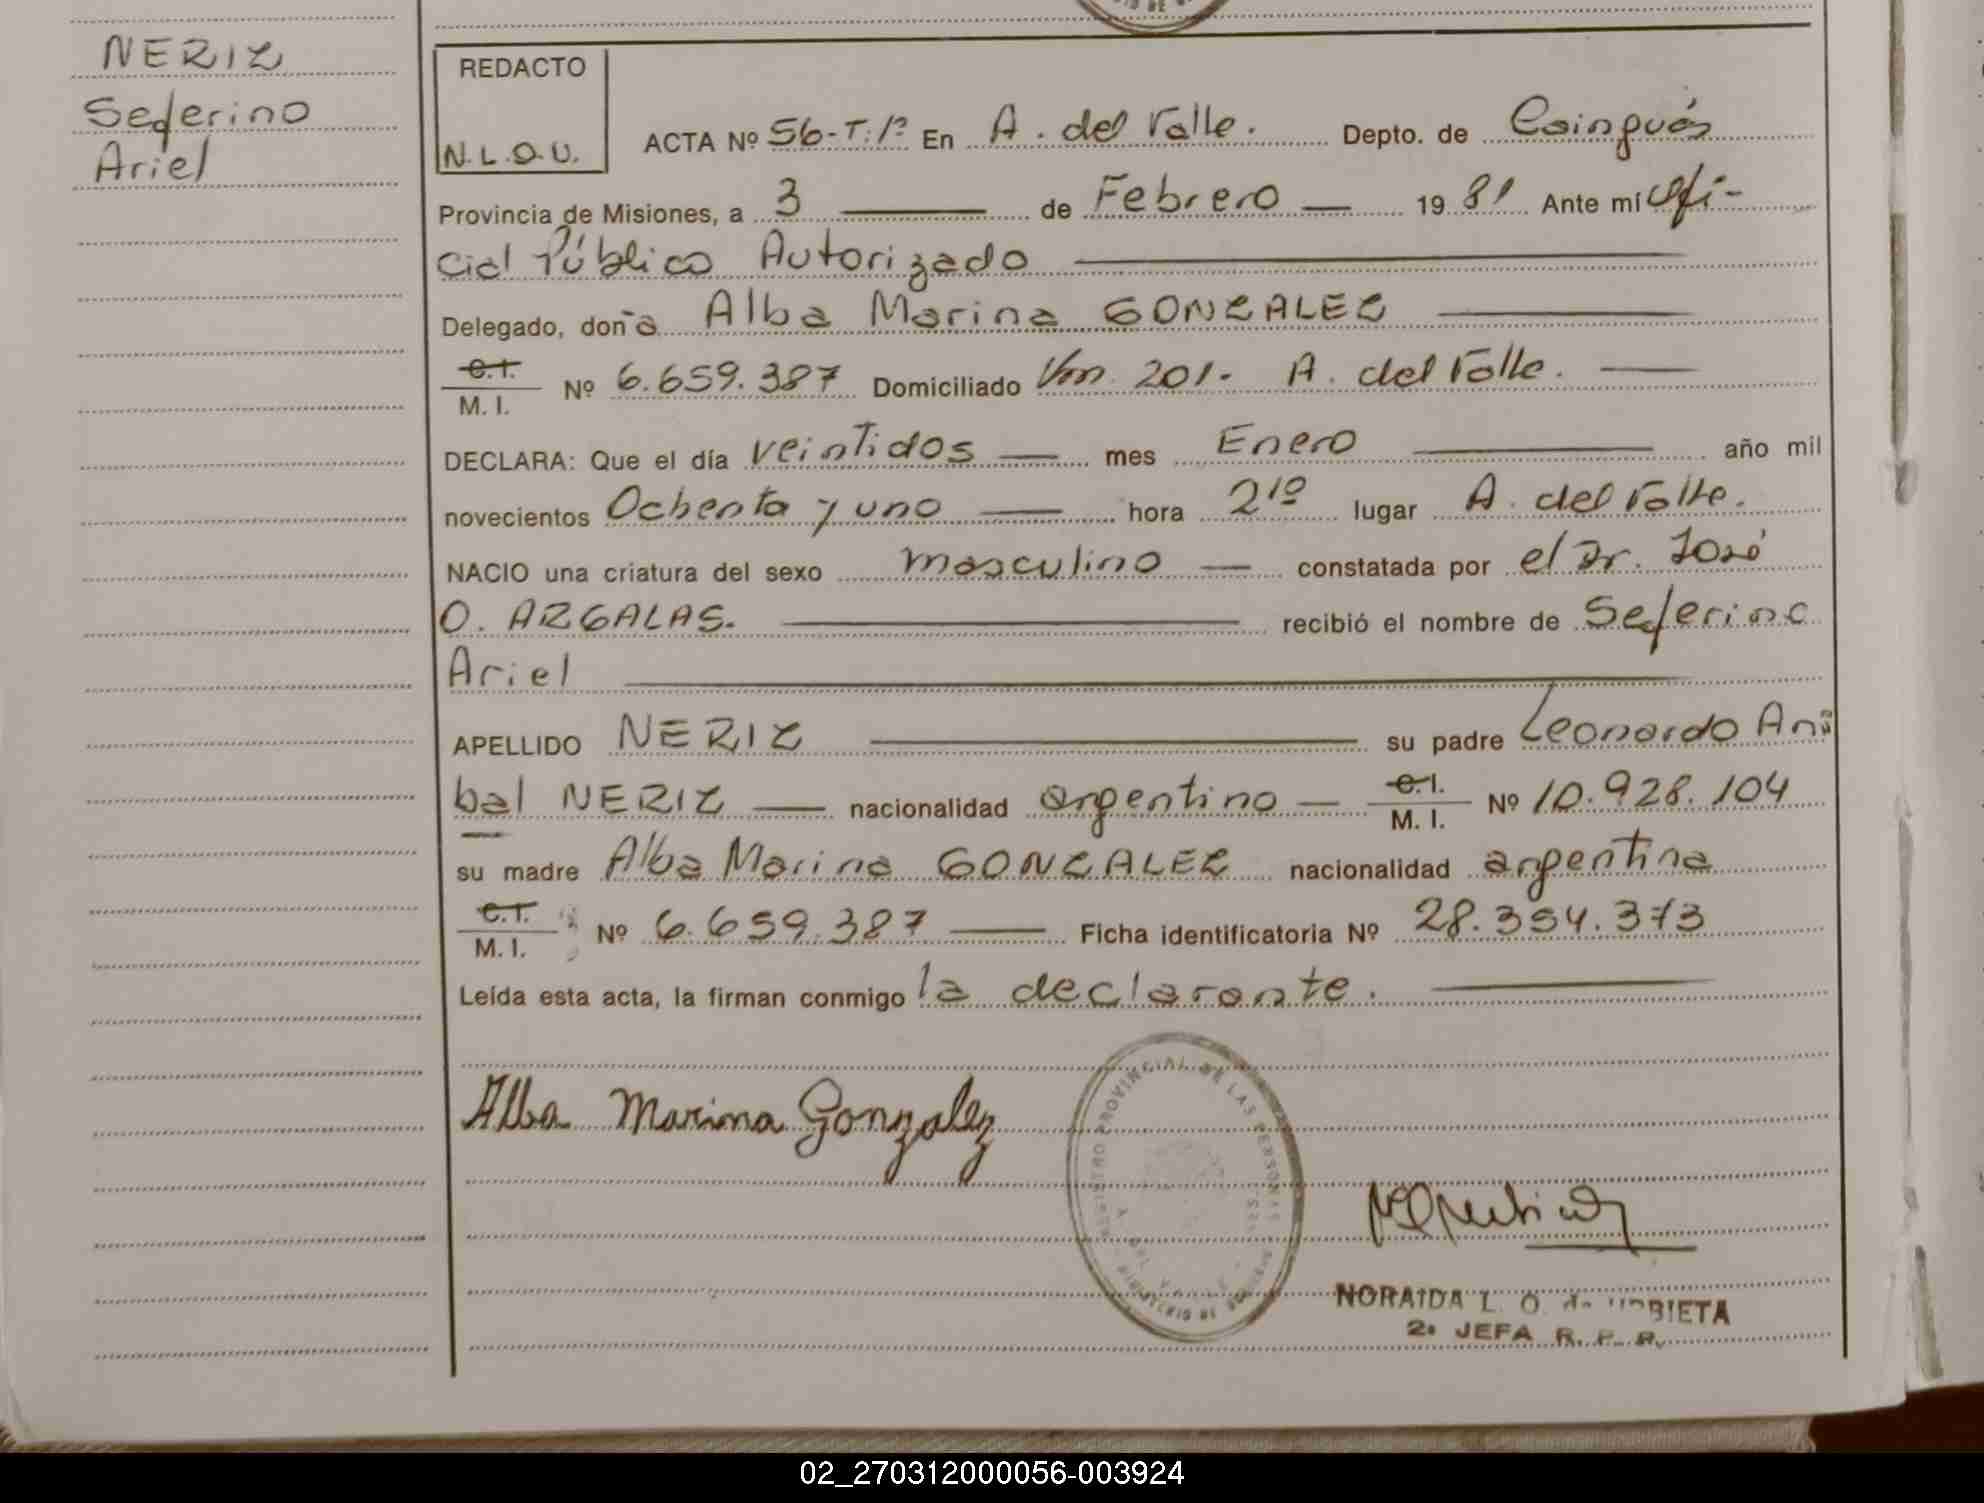 NERIZ
Seferino
Ariel
REDACTO
N.L.O.U.
ACTA Nº 56-T:1º En A. del Valle. Depto. de Cainguás
Provincia de Misiones, a 3 de Febrero 1981 Ante mí Ofi-
cial Público Autorizado
Delegado, doña Alba Marina GONZALEZ
C.I.
M. I. Nº 6.659.387 Domiciliado Km. 201. A. del Valle.
DECLARA: Que el día veintidos mes Enero año mil
novecientos Ochenta y uno hora 21º lugar A. del Valle.
NACIO una criatura del sexo masculino constatada por el Dr. José
O. ARGALAS. recibió el nombre de Seferino
Ariel
APELLIDO NERIZ su padre Leonardo Aní
bal NERIZ nacionalidad argentino C.I.
M. I. Nº 10.928.104
su madre Alba Marina GONZALEZ nacionalidad argentina
C.I.
M. I. Nº 6.659.387 Ficha identificatoria Nº 28.354.373
Leída esta acta, la firman conmigo la declarante.
Alba Marina Gonzalez
REGISTRO PROVINCIAL DE LAS PERSONAS
A. DEL VALLE
MINISTERIO DE GOBIERNO
NORAIDA L. O. de URBIETA
2º JEFA R. P. P.
02_270312000056-003924